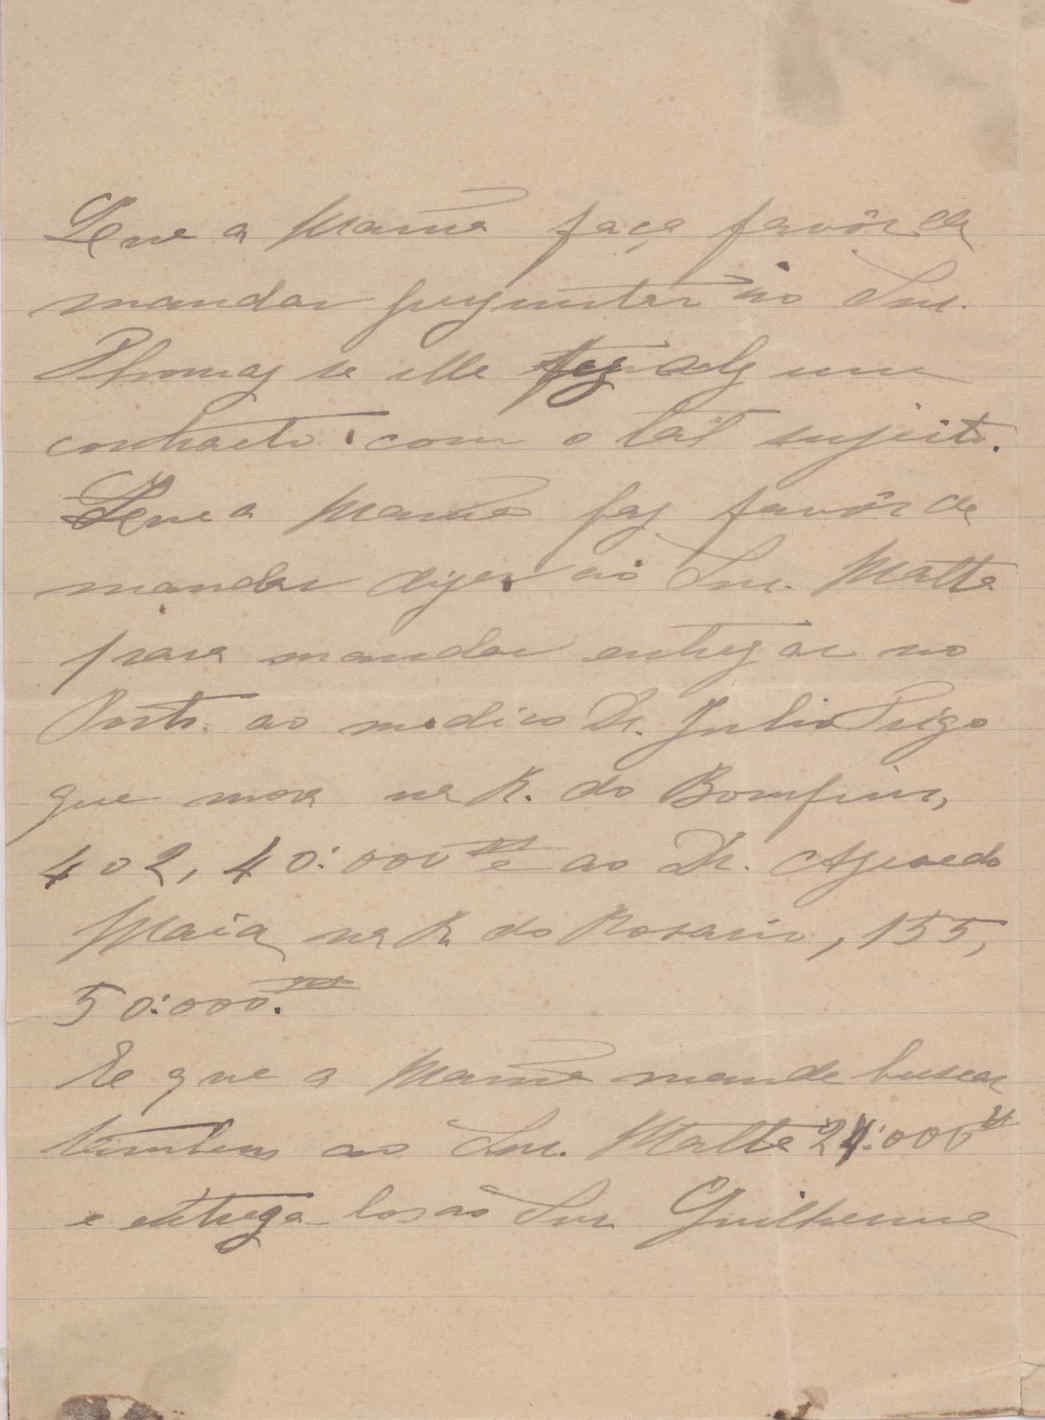 Que a Mamã faça favôr de
mandar perguntar ao Snr.
Thomaz se elle fez algum
contracto com o tal sujeito.
Que a Mamã faz favôr de
mandar dizer ao Snr. Matta
para mandar entregar no
Porto ao medico Dr. Julio
que mora na R. do Bomfim,
402, 40:000 rs e ao Dr. Azevedo
Maia, na R. do Rosario, 155,
50:000. rs
E que a Mamã mande buscar
tambem ao Snr. Matta
e entrega-los ao Snr. Guilherme